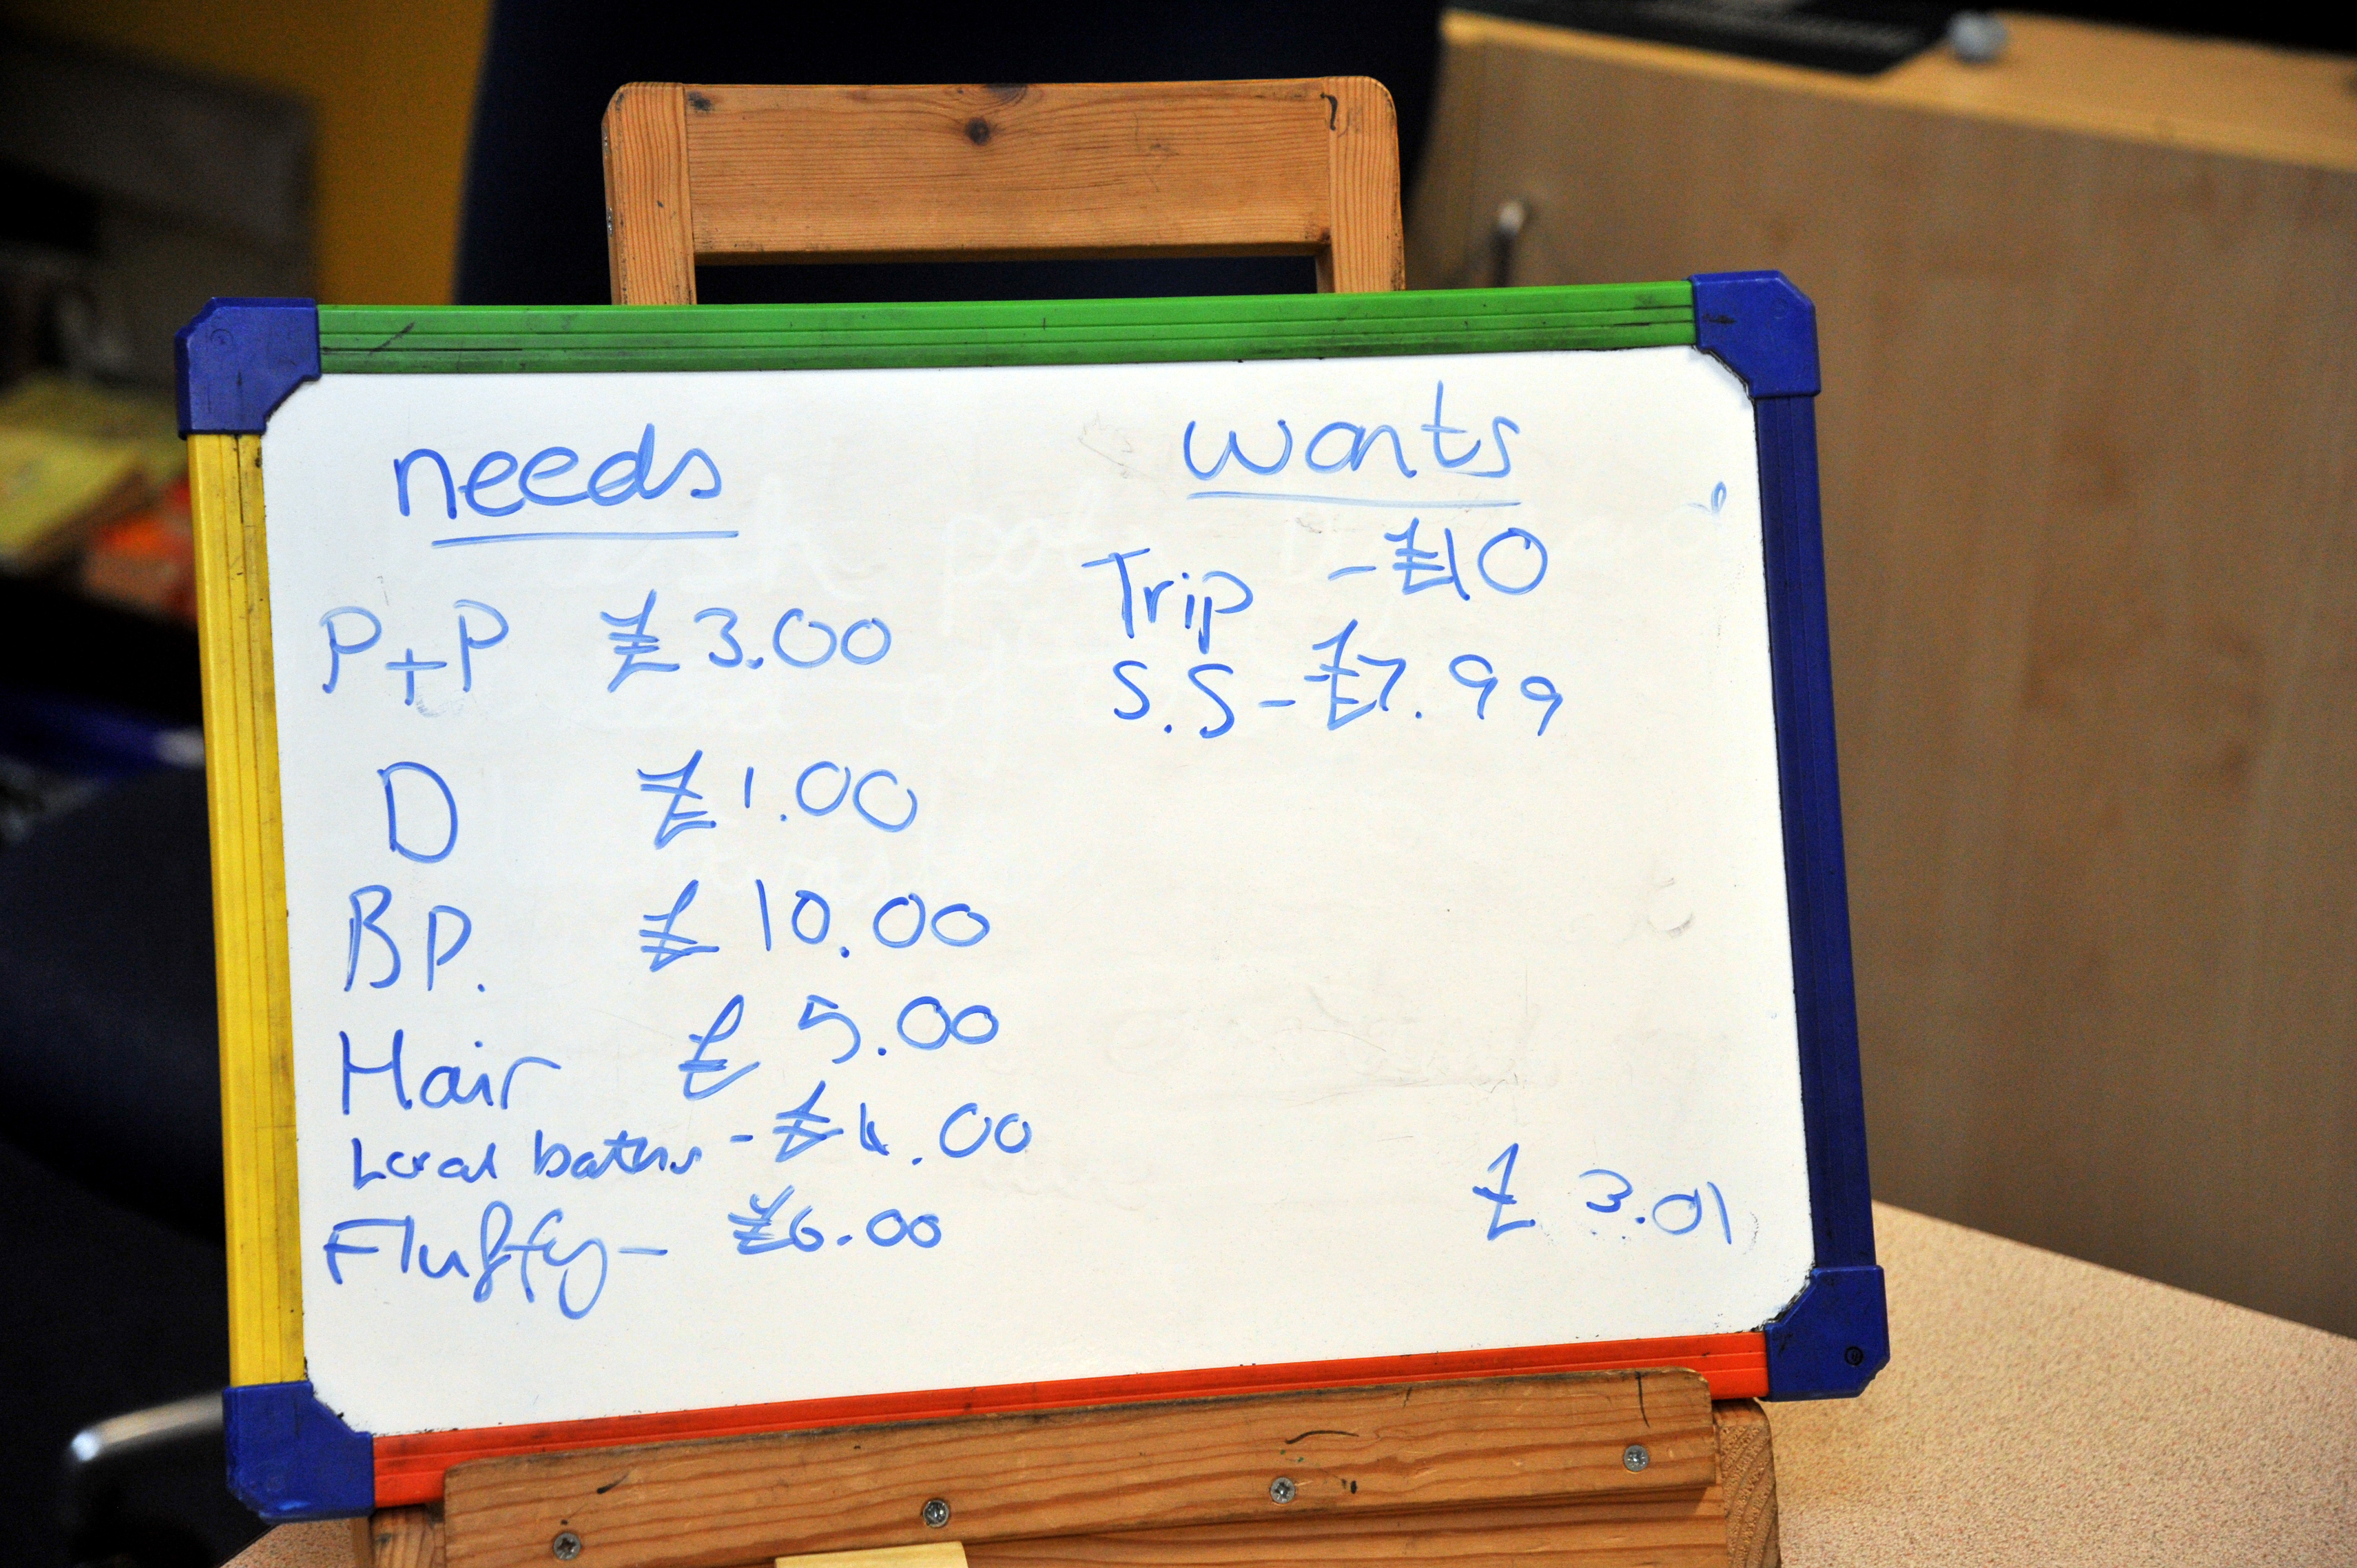 needs
P+P £3.00
D £1.00
B P. £10.00
Hair £5.00
Local baths - £4.00
Fluffy - £6.00
wants
Trip - £10
S.S - £7.99
£3.01